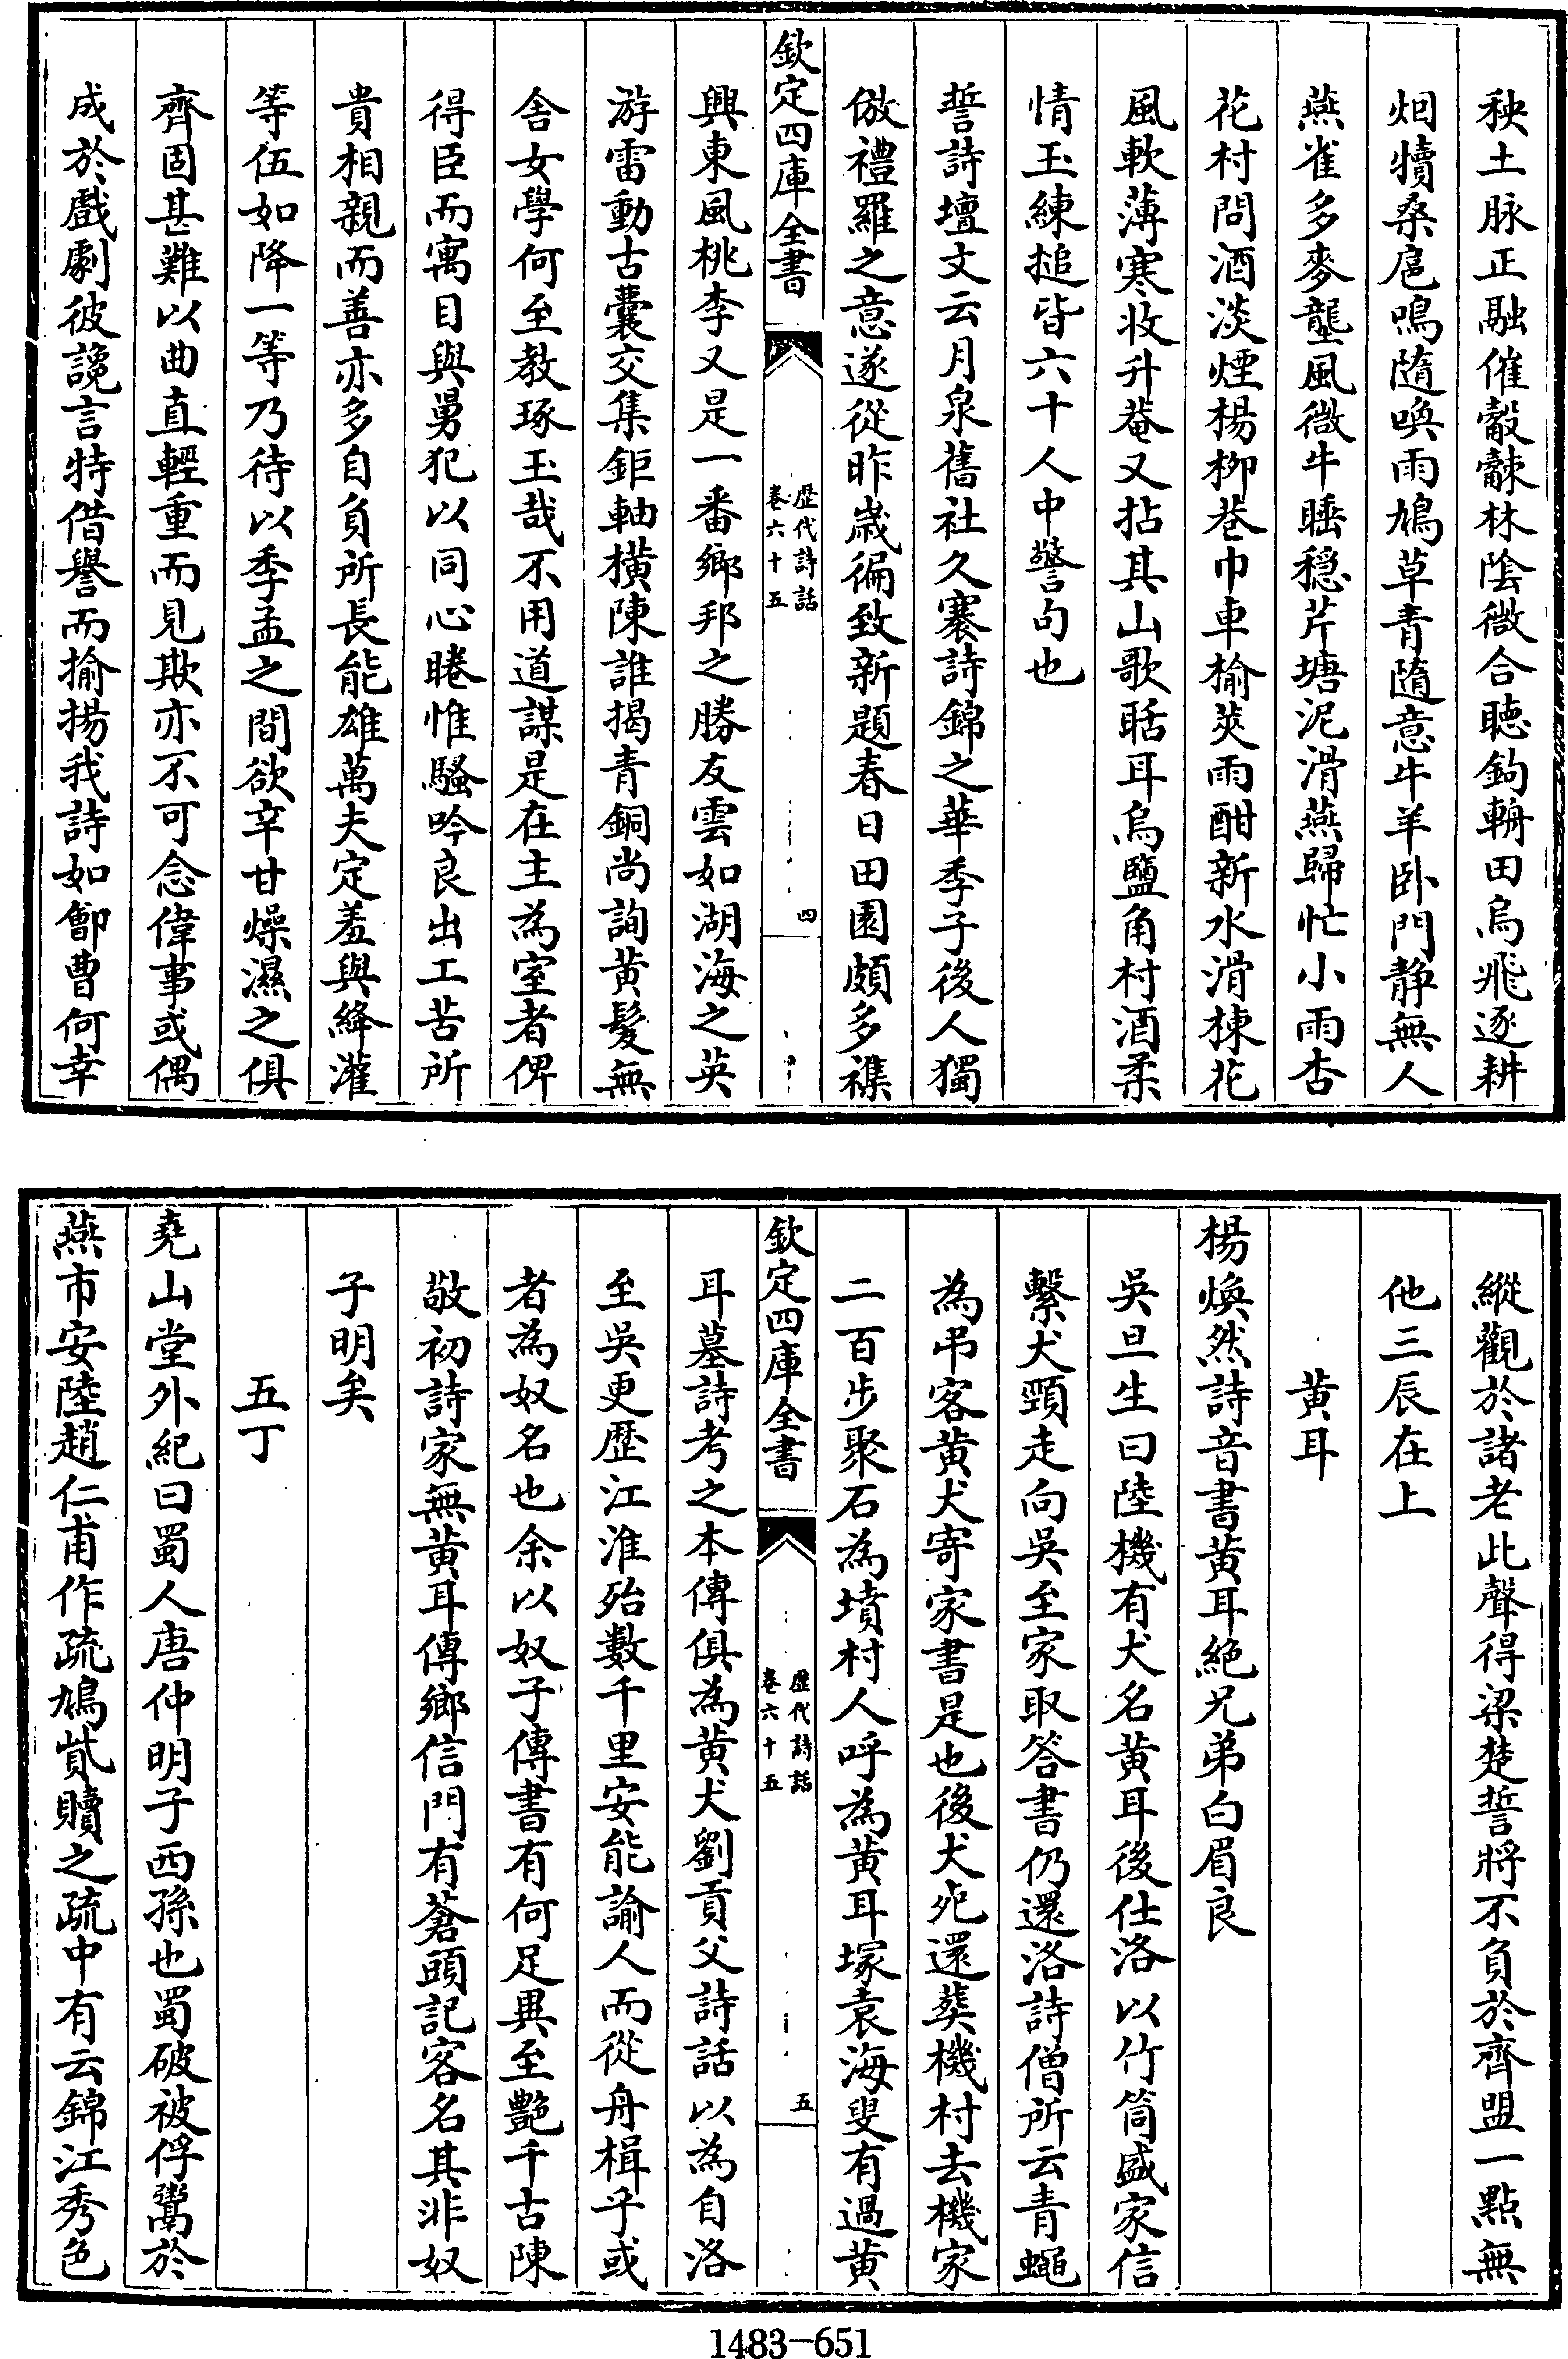 秧土脉正融催觳觫林陰微合聴鉤輈田烏飛逐耕
烟犢桑扈鳴隨喚雨鳩草青隨意牛羊卧門静無人
燕雀多麥壠風微牛睡穏芹塘泥滑燕歸忙小雨杏
花村問酒淡煙楊栁巷巾車榆莢雨酣新水滑楝花
風軟薄寒收升菴又拈其山歌聒耳烏鹽角村酒柔
情玉練搥皆六十人中警句也
誓詩壇文云月泉舊社久褰詩錦之華季子後人獨
倣禮羅之意遂從昨歳徧致新題春日田園頗多襍
欽定四庫全書
歴代詩話
卷六十五
四
興東風桃李又是一番鄉邦之勝友雲如湖海之英
游雷動古囊交集鉅軸横陳誰揭青銅尚詢黄髪無
舍女學何至教琢玉哉不用道謀是在主為室者俾
得臣而寓目與舅犯以同心睠惟騷吟良出工苦所
貴相親而善亦多自負所長能雄萬夫定羞與絳灌
等伍如降一等乃待以季孟之間欲辛甘燥濕之俱
齊固甚難以曲直輕重而見欺亦不可念偉事或偶
成於戲劇彼讒言特借譽而揄揚我詩如鄶曹何幸
縱觀於諸老此聲得梁楚誓將不負於齊盟一點無
他三辰在上
黄耳
楊煥然詩音書黄耳絶兄弟白眉良
吳旦生曰陸機有犬名黄耳後仕洛以竹筒盛家信
繫犬頸走向吳至家取答書仍還洛詩僧所云青蠅
為弔客黄犬寄家書是也後犬死還葬機村去機家
二百步聚石為墳村人呼為黄耳塚袁海叟有過黄
欽定四庫全書
歴代詩話
卷六十五
五
耳墓詩考之本傳俱為黄犬劉貢父詩話以為自洛
至吳更歴江淮殆數千里安能諭人而從舟楫乎或
者為奴名也余以奴子傳書有何足異至艷千古陳
敬初詩家無黄耳傳鄉信門有蒼頭記客名其非奴
子明矣
五丁
堯山堂外紀曰蜀人唐仲明子西孫也蜀破被俘鬻於
燕市安陸趙仁甫作疏鳩貲贖之疏中有云錦江秀色
1483-651